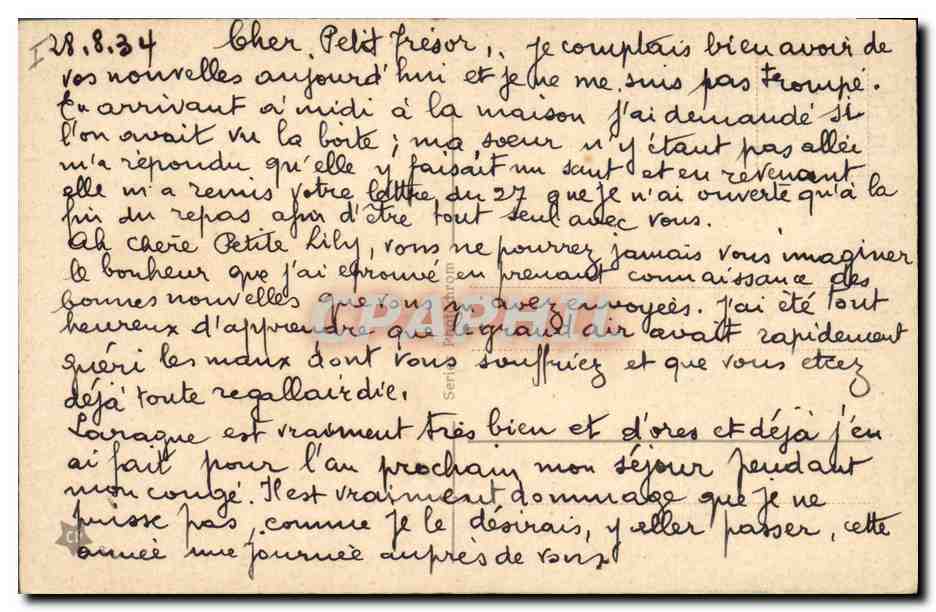 I 28.8.34 Cher Petit Trésor, je comptais bien avoir de
vos nouvelles aujourd'hui et je ne me suis pas trompé.
En arrivant à midi à la maison j'ai demandé si
l'on avait vu la boite; ma soeur n'y étant pas allée
m'a répondu qu'elle y faisait un saut et en revenant
elle m'a remis votre lettre du 27 que je n'ai ouverte qu'à la
fin du repas afin d'être tout seul avec vous.
Ah chère Petite Lily, vous ne pourrez jamais vous imaginer
le bonheur que j'ai eprouvé en prenant connaissance des
bonnes nouvelles que vous m'avez envoyées. J'ai été tout
heureux d'apprendre que le grand air avait rapidement
guéri les maux dont vous souffriez et que vous etiez
déjà toute regallairdie.
Laragne est vraiment très bien et d'ores et déjà j'en
ai fait pour l'an prochain mon séjour pendant
mon congé. Il est vraiment dommage que je ne
puisse pas, comme je le désirais, y aller passer, cette
année une journée auprès de vous
CPAPHIL
Serie
CI